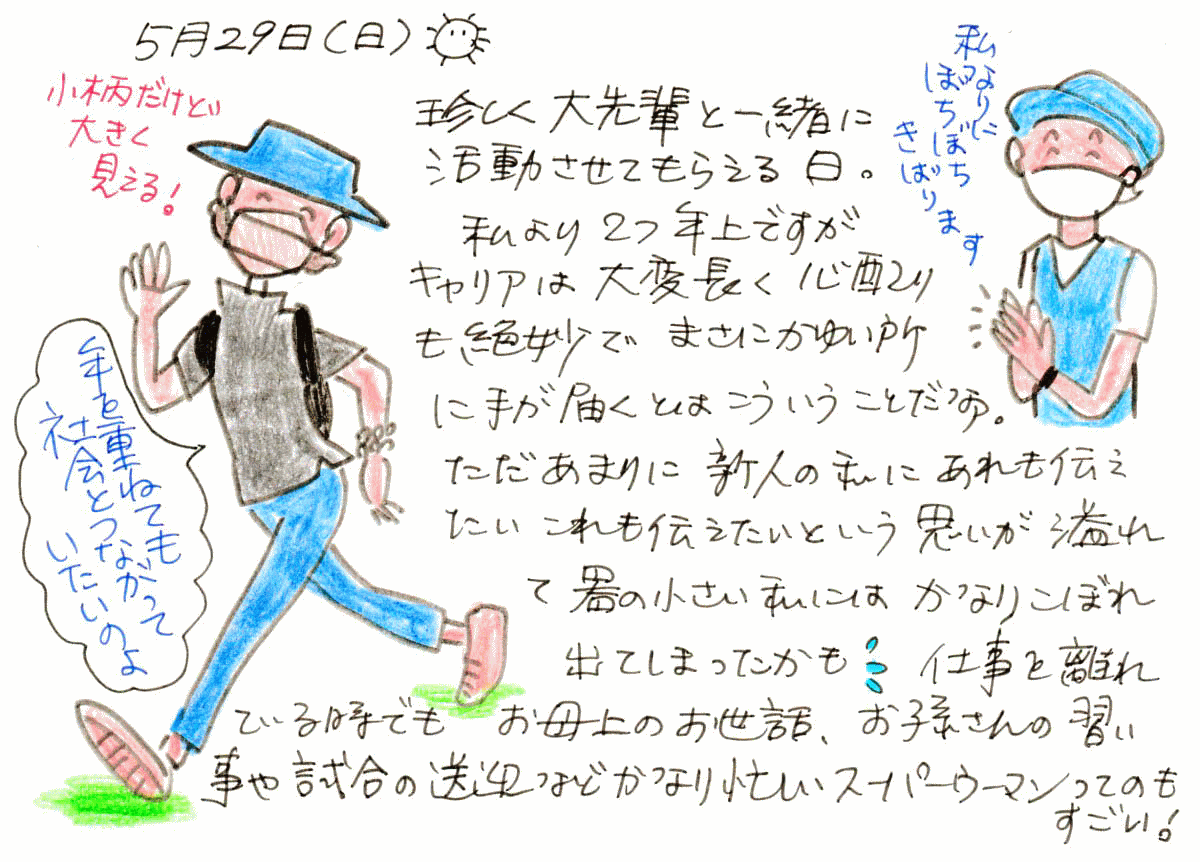 5月29日(日)
小柄だけど
大きく
見える!
珍しく 大先輩と一緒に
活動させてもらえる 日。
私より 2つ 年上ですが
キャリアは 大変長く 心配り
も絶妙で まさにかゆい所
に手が届くとは こういうことだなァ。
ただ あまりに 新人の 私に あれも伝え
たい これも伝えたいという 思いが 溢れ
て 器の小さい 私には かなりこぼれ
出てしまったかも 仕事を離れ
ている時でも お母上の お世話、お孫さんの 習い
事や 試合の 送迎などかなり忙しいスーパーウーマンってのも
すごい!
私なりに
ぼちぼち
きばります
年を重ねても
社会とつながって
いたいのよ